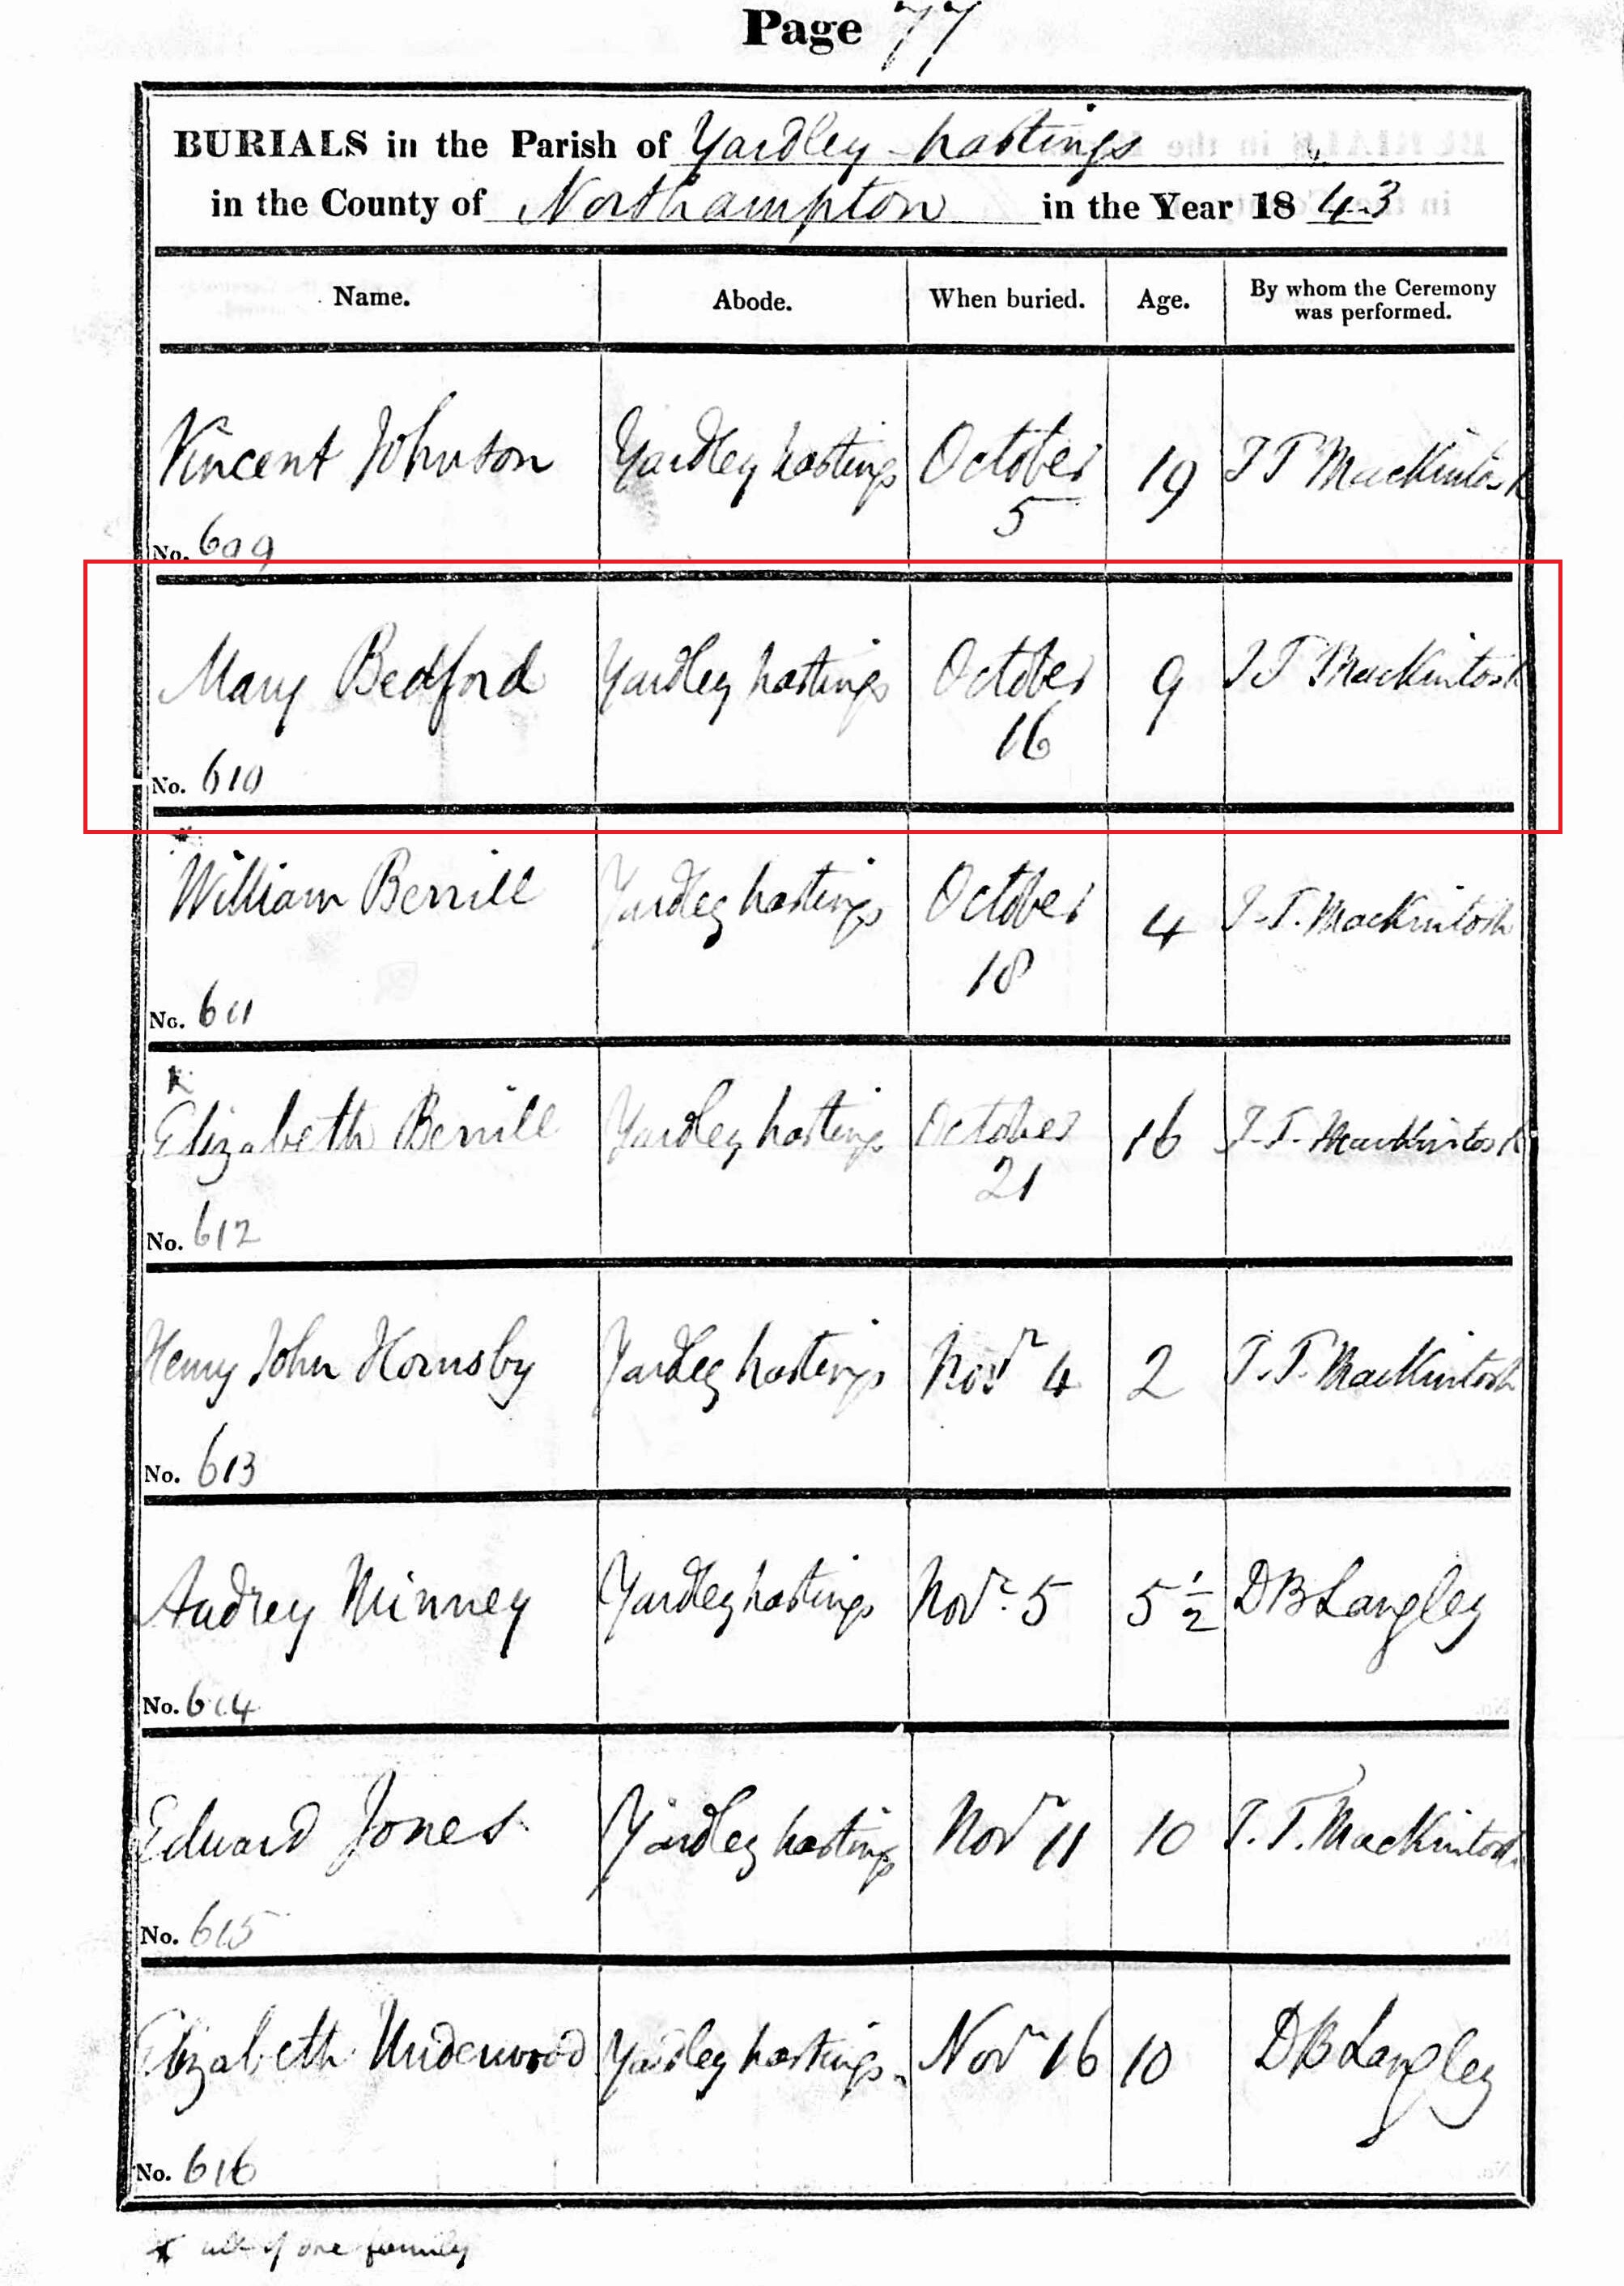 Page 77
BURIALS in the Parish of Yardley hastings
in the County of Northampton in the Year 1843
Name. Abode. When buried. Age. By whom the Ceremony was performed.
Vincent Johnson Yardley hastings October 5 19 J T Mackintosh
No. 609
Mary Bedford Yardley hastings October 16 9 J T Mackintosh
No. 610
*
William Berrill Yardley hastings October 18 4 J. T. Mackintosh
No. 611
*
Elizabeth Berrill Yardley hastings October 21 16 J. T. Mackintosh
No. 612
Henry John Hornsby Yardley hastings Novr 4 2 J. T. Mackintosh
No. 613
Audrey Minney Yardley hastings Novr. 5 5 1/2 D B Langley
No. 614
Edward Jones Yardley hastings Novr 11 10 J. T. Mackintosh
No. 615
Elizabeth Underwood Yardley hastings Novr 16 10 D B Langley
No. 616
* all of one family